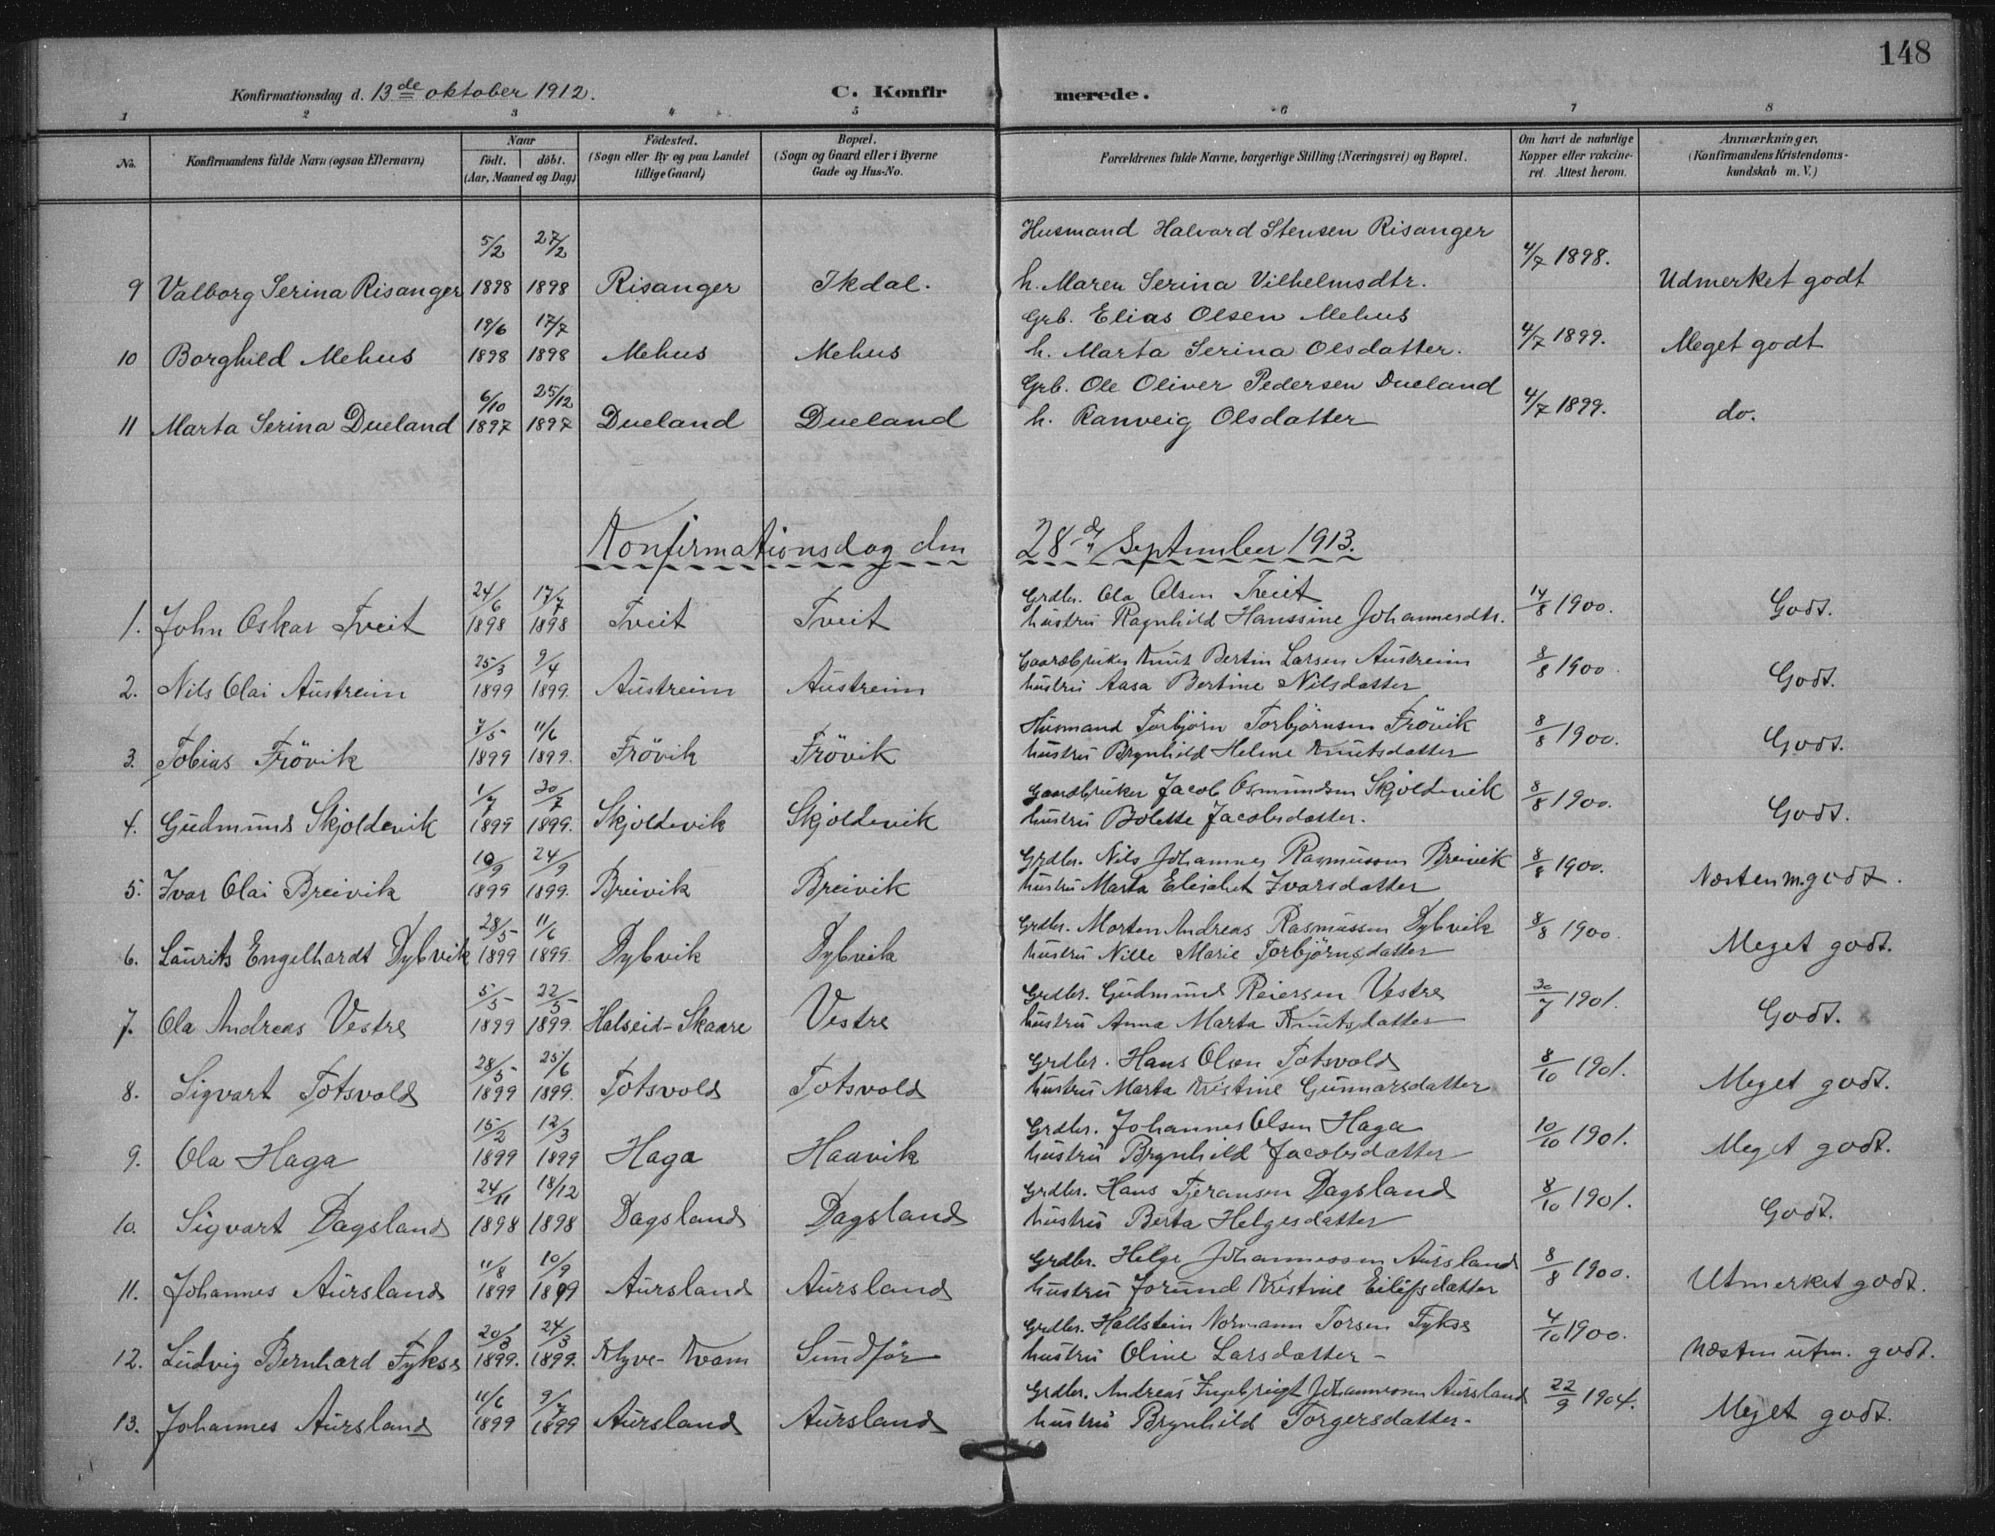 148
Konfirmationsdag d. 13de oktober 1912. C. Konfir merede.
1 2 3 4 5 6 7 8
No. Konfirmandens fulde Navn (ogsaa Efternavn) Naar født. døbt. (Aar, Maaned og Dag) Fødested. (Sogn eller By og paa Landet tillige Gaard) Bopæl. (Sogn og Gaard eller i Byerne Gade og Hus-No. Forældrenes fulde Navne, borgerlige Stilling (Næringsvei) og Bopæl. Om havt de naturlige Kopper eller vakcineret. Attest herom. Anmærkninger. (Konfirmandens Kristendomskundskab m. V.)
5/2 27/2 Husmand Halvard Stensen Risanger
9 Valborg Serina Risanger 1898 1898 Risanger Ikdal. h. Maren Serina Vilhelmsdtr. 4/7 1898. Udmerket godt
19/6 17/7 Grb. Elias Olsen Mehus
10 Borghild Mehus 1898 1898 Mehus Mehus h. Marta Serina Olsdatter. 4/7 1899. Meget godt
6/10 25/12 Grb. Ole Oliver Pedersen Dueland
11 Marta Serina Dueland 1897 1897 Dueland Dueland h. Ranveig Olsdatter 4/7 1899. do.
Konfirmationsdag den 28de September 1913.
24/6 17/7 Grdbr. Ola Olsen Tveit
1. John Oskar Tveit 1898 1898 Tveit Tveit hustru Ragnhild Hanssine Johannesdtr. 14/8 1900. Godt.
25/3 9/4 Gaardbruker Knut Bertin Larsen Austreim
2. Nils Olai Austreim 1899 1899. Austreim Austreim hustru Aasa Bertine Nilsdatter 8/8 1900. Godt.
7/5 11/6 Husmand Torbjörn Torbjörnsen Frövik
3. Tobias Frövik 1899 1899. Frövik Frövik hustru Brynhild Helene Knutsdatter 8/8 1900. Godt.
1/7 30/7 Gaardbruker Jacob Osmundsen Skjoldevik
4. Gudmund Skjoldevik 1899 1899. Skjoldevik Skjoldevik hustru Bolette Jacobsdatter. 8/8 1900. Godt.
10/9 24/9 Grdbr. Nils Johannes Rasmussen Breivik
5. Ivar Olai Breivik 1899 1899. Breivik Breivik hustru Marta Elisabet Ivarsdatter 8/8 1900. Næsten m. godt.
28/5 11/6 Grdbr. Morten Andreas Rasmussen Dybvik
6. Laurits Engelhardt Dybvik 1899 1899. Dybvik Dybvik hustru Nille Marie Torbjörnsdatter 8/8 1900. Meget godt.
5/5 22/5 Grdbr. Gudmund Reiersen Vestre
7. Ola Andreas Vestre 1899 1899. Halseid-Skaare Vestre hustru Anna Marta Knutsdatter 30/7 1901. Godt.
28/5 25/6 Grdbr. Hans Olsen Totsvold
8. Sigvart Totsvold 1899 1899. Totsvold Totsvold hustru Marta Kristine Gunnarsdatter 8/10 1901. Meget godt.
15/2 12/3 Grdbr. Johannes Olsen Haga
9. Ola Haga 1899 1899 Haga Haavik hustru Brynhild Jacobsdatter 10/10 1901. Meget godt.
24/11 18/12 Grdbr. Hans Tjeransen Dagsland
10. Sigvart Dagsland 1898 1898 Dagsland Dagsland hustru Berta Helgesdatter 8/10 1901. Godt.
11/8 10/9 Grdbr. Helge Johannessen Aursland
11. Johannes Aursland 1899 1899 Aursland Aursland hustru Jorund Kristine Eilefsdatter 8/8 1900. Utmerket godt.
20/3 24/3 Grdbr. Hallstein Normann Torsen Fykse
12. Ludvig Bernhard Fykse 1899. 1899. Klyve-Kvam Sundför hustru Oline Larsdatter- 4/10 1900. Næsten utm. godt.
11/6 9/7 Grdbr. Andreas Ingebrigt Johannessen Aursland
13. Johannes Aursland 1899 1899 Aursland Aursland hustru Brynhild Torgersdatter- 22/9 1904. Meget godt.